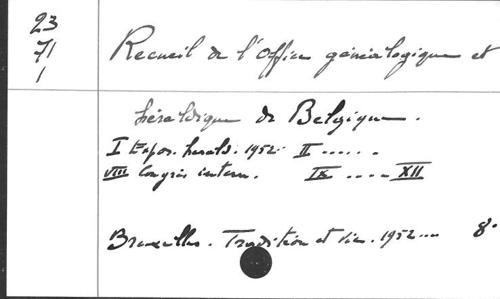 23
71
1
Recueil de l'Office généalogique et
héraldique de Belgique.
I Expos. herald. 1952. II ......
VIII Congrès intern. IX .... XII
Bruxelles. Tradition et Vie. 1952... 8°